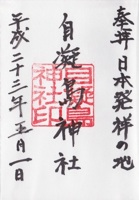 奉拝 日本発祥の地
自凝島神社
自凝島
神社印
平成二十三年五月一日